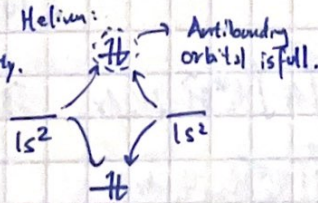 Helium:
Antibonding
orbital is full.
ty.
1s² 1s²